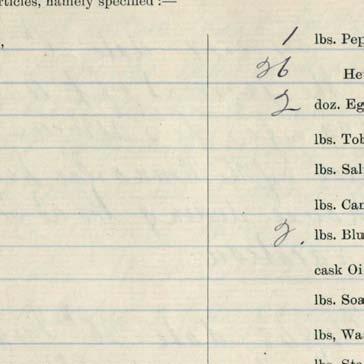 rticles, namely specified :—
1 lbs. Pep
26 He
2 doz. Eg
lbs. Tob
lbs. Sal
lbs. Can
2. lbs. Blu
cask Oi
lbs. Soa
lbs, Wa